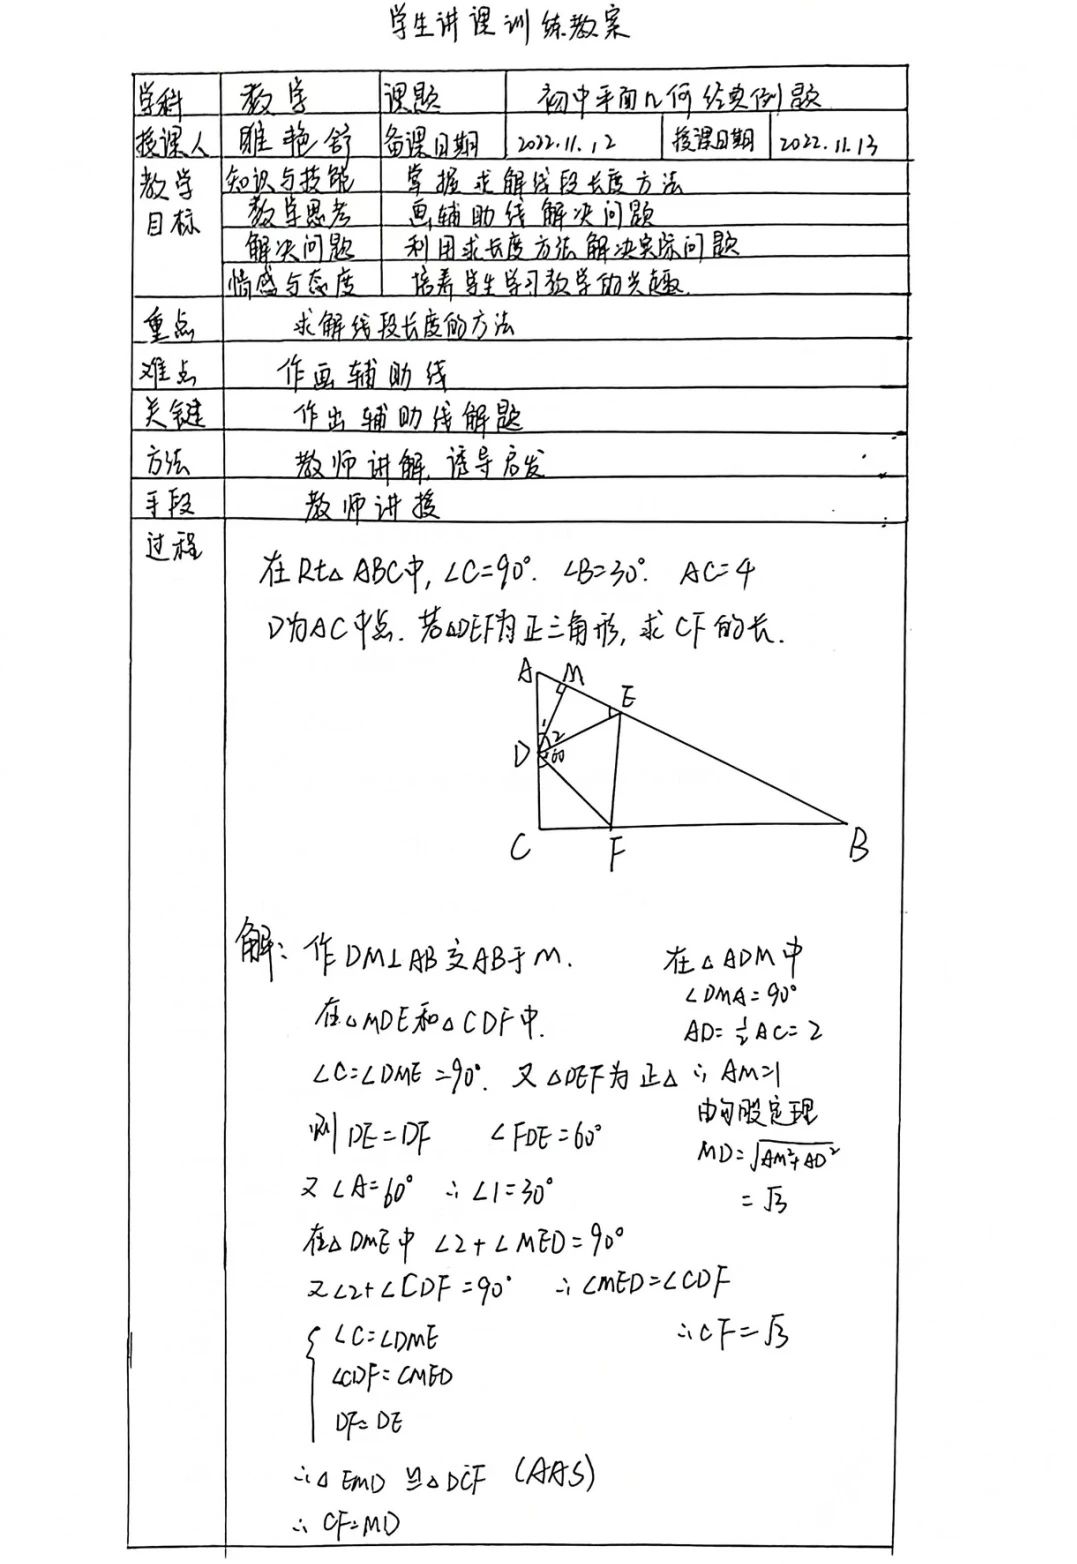 学生讲课训练教案
学科 数学 课题 初中平面几何经典例题
授课人 雎艳舒 备课日期 2022.11.12 授课日期 2022.11.13
教学目标 知识与技能 掌握求解线段长度方法
数学思考 画辅助线解决问题
解决问题 利用求长度方法解决实际问题
情感与态度 培养学生学习数学的兴趣.
重点 求解线段长度的方法
难点 作画辅助线
关键 作出辅助线解题
方法 教师讲解,诱导启发
手段 教师讲授
过程
在Rt△ABC中,∠C=90°. ∠B=30°. AC=4
D为AC中点.若△DEF为正三角形,求CF的长.
A M
E
1 2
D 60
C F B
解:作DM⊥AB交AB于M.
在△MDE和△CDF中.
∠C=∠DME=90°. 又△DEF为正△
则DE=DF ∠FDE=60°
又∠A=60° ∴∠1=30°
在△DME中 ∠2+∠MED=90°
又∠2+∠CDF=90° ∴∠MED=∠CDF
∠C=∠DME
∠CDF=∠MED
DF=DE
∴△EMD≌△DCF (AAS)
∴CF=MD
在△ADM中
∠DMA=90°
AD=½AC=2
∴AM=1
由勾股定理
MD=√AM²+AD²
=√3
∴CF=√3